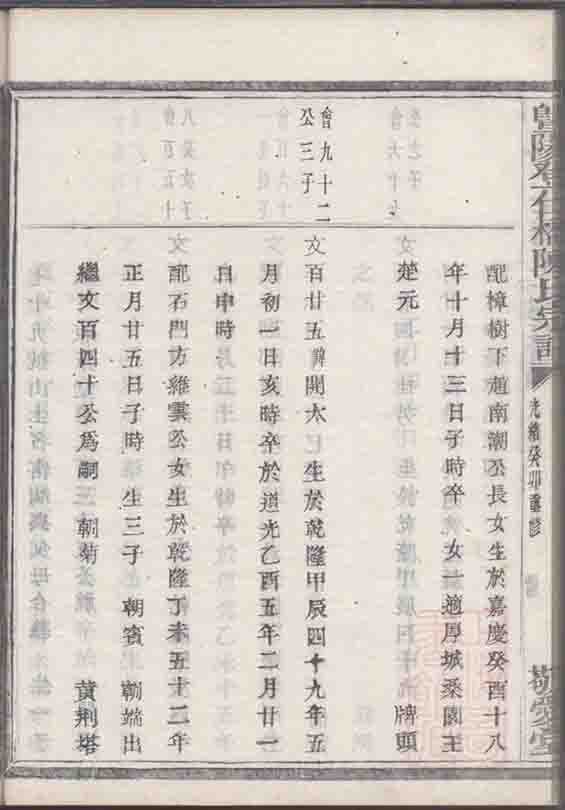 暨陽孝石楊陳氏宗譜
光緒癸卯重修
敬愛堂
配樟樹下趙南潮公長女生於嘉慶癸酉十八
年十月十三日子時卒 女一適厚城桑園王
楚元 牌頭
會九十二
公三子
文百廿五諱開太 生於乾隆甲辰四十九年五
月初一日亥時卒於道光乙酉五年二月廿一
日申時
配石門方維雲公女生於乾隆丁未五十二年
正月廿五日子時 生三子 朝賓 朝端出
繼文百四十公為嗣 朝菊 黃荆塔